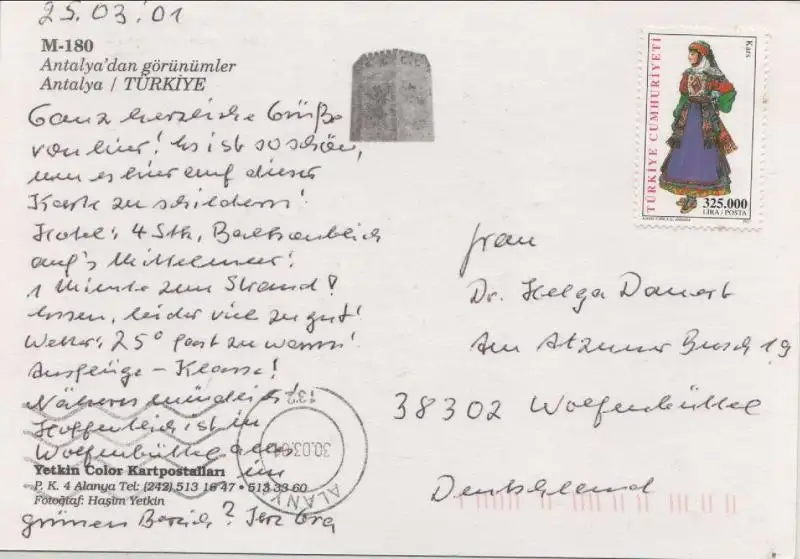 25.03.01
M-180
Antalya'dan görünümler
Antalya / TÜRKİYE
Ganz herzliche Grüße
von hier! Es ist so schön,
um es hier auf dieser
Karte zu schildern!
Hotel: 4 Stk, Balkonblick
auf's Mittelmeer!
1 Minute zum Strand!
Essen, leider viel zu gut!
Wetter: 25° fast zu warm!
Ausflüge - Klasse!
Näheres mündlich!
Hoffentlich ist in
Wolfenbüttel alles
im
Yetkin Color Kartpostalları
P. K. 4 Alanya Tel: (242) 513 16 47 • 513 33 60
Fotoğtaf: Haşim Yetkin
grünen Bereich?
TÜRKİYE CUMHURİYETİ
Kars
325.000
LİRA / POSTA
Frau
Dr. Helga
Am Atzumer Busch 19
38302 Wolfenbüttel
Deutschland
30.03.01
ALANYA